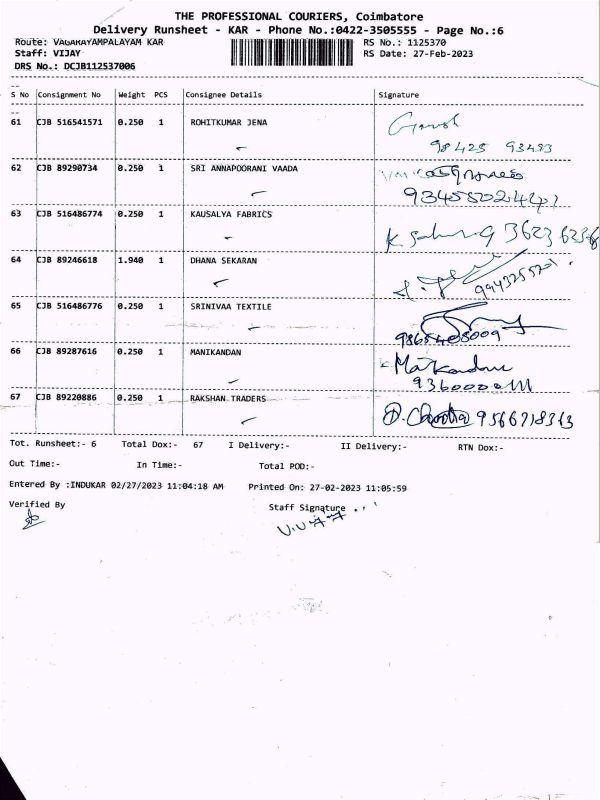 THE PROFESSIONAL COURIERS, Coimbatore
Delivery Runsheet - KAR - Phone No.:0422-3505555 - Page No.:6
Route: VAGARAYAMPALAYAM KAR
RS No.: 1125370
Staff: VIJAY
RS Date: 27-Feb-2023
DRS No.: DCJB112537006
S No Consignment No Weight PCS Consignee Details Signature
61 CJB 516541571 0.250 1 ROHITKUMAR JENA
98425 93493
62 CJB 89290734 0.250 1 SRI ANNAPOORANI VAADA
63 CJB 516486774 0.250 1 KAUSALYA FABRICS
64 CJB 89246618 1.940 1 DHANA SEKARAN
9943255201
65 CJB 516486776 0.250 1 SRINIVAA TEXTILE
9865408009
66 CJB 89287616 0.250 1 MANIKANDAN
9360000111
67 CJB 89220886 0.250 1 RAKSHAN TRADERS
9566718313
Tot. Runsheet:- 6 Total Dox:- 67 I Delivery:- II Delivery:- RTN Dox:-
Out Time:- In Time:- Total POD:-
Entered By :INDUKAR 02/27/2023 11:04:18 AM Printed On: 27-02-2023 11:05:59
Verified By Staff Signature